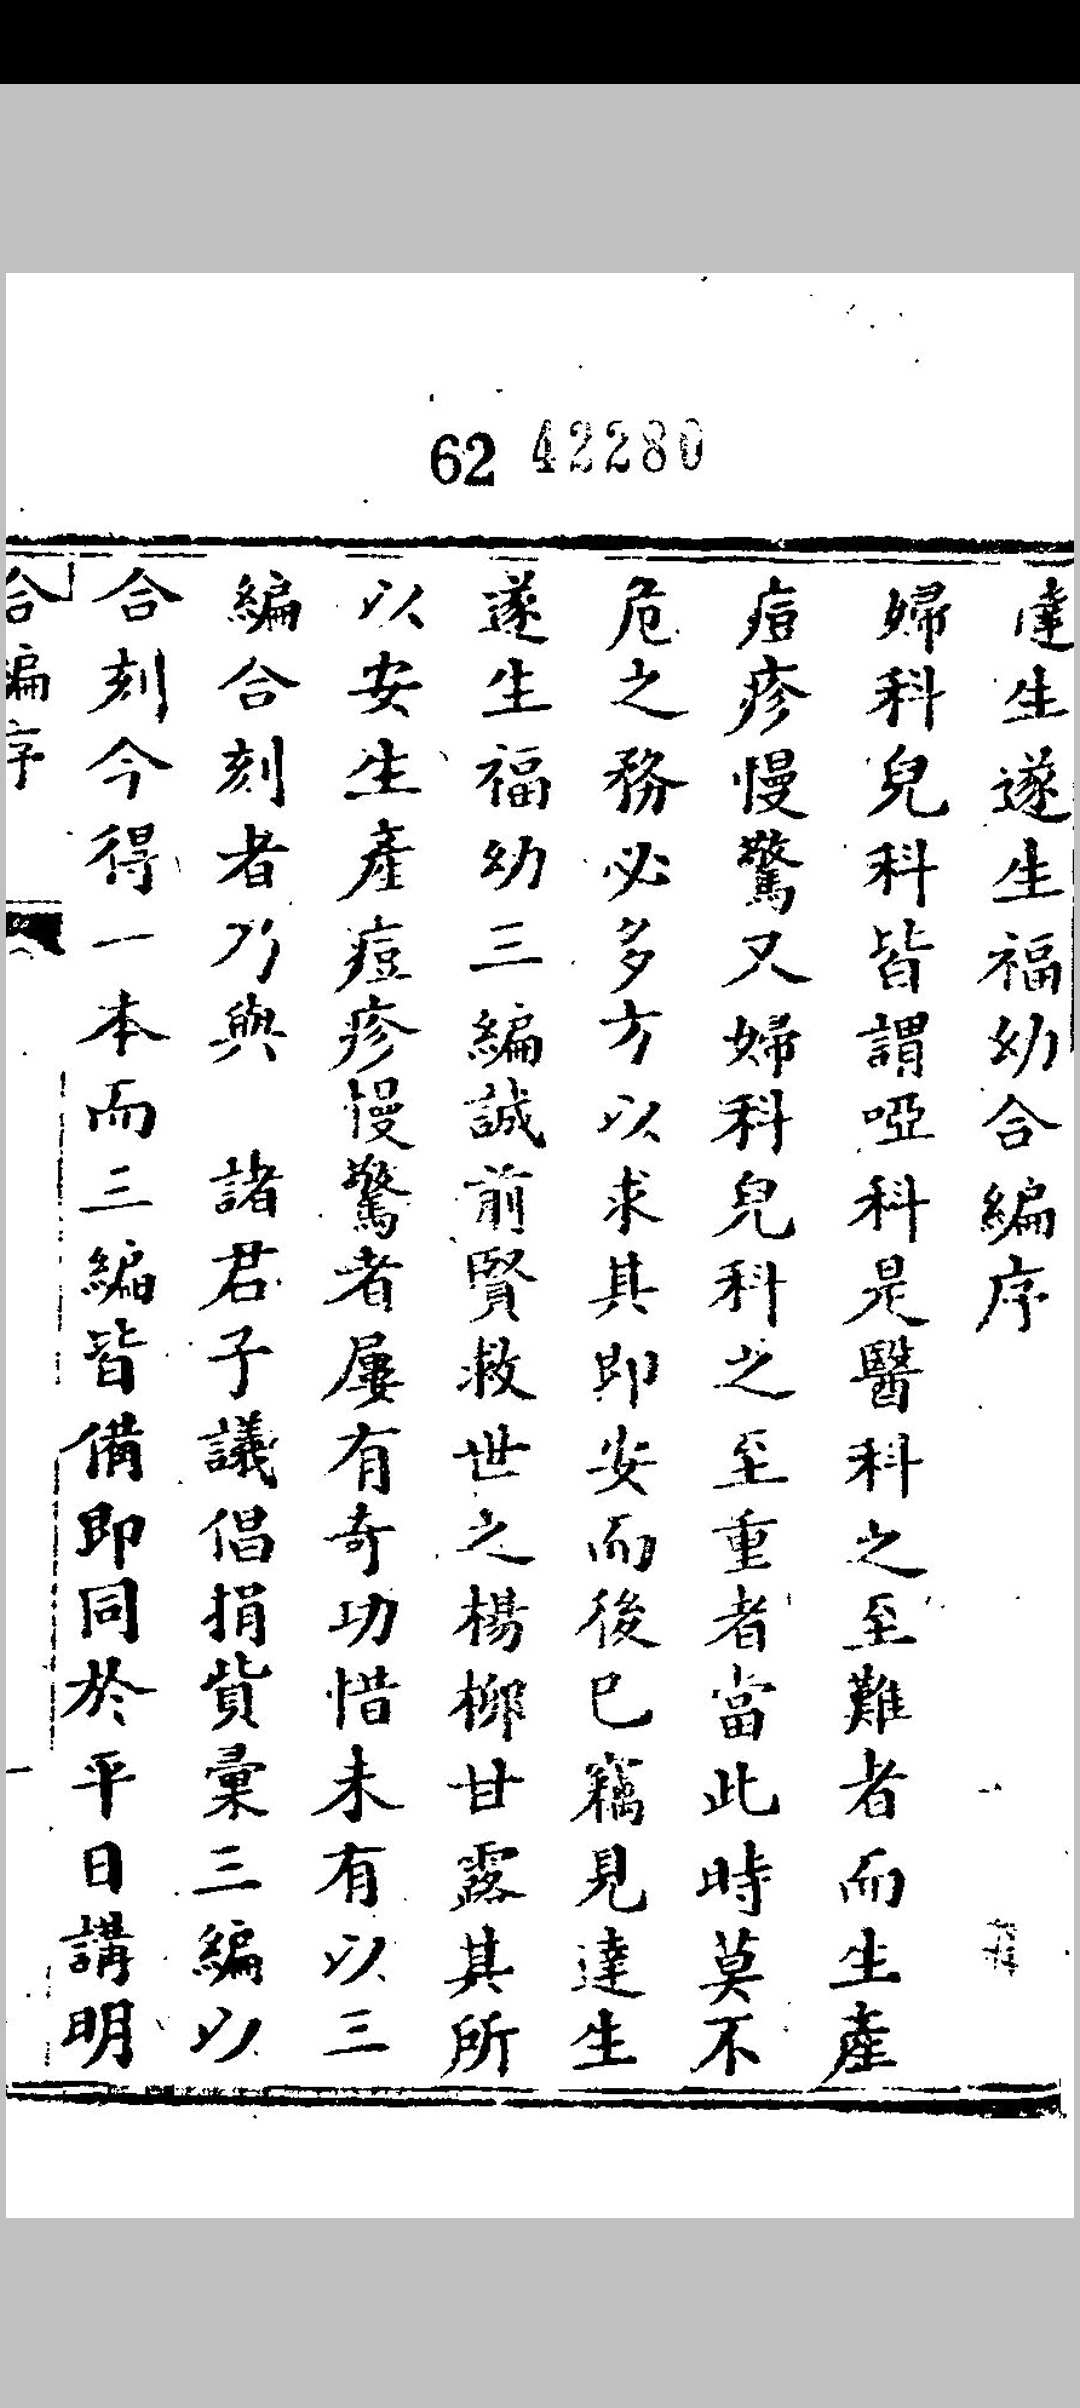 62 42280
達生遂生福幼合編序
婦科兒科皆謂啞科是醫科之至難者而生產
痘疹慢驚又婦科兒科之至重者當此時莫不
危之務必多方以求其即安而後已竊見達生
遂生福幼三編誠前賢救世之楊柳甘露其所
以安生產痘疹慢驚者屢有奇功惜未有以三
編合刻者乃與 諸君子議倡捐貲彙三編以
合刻今得一本而三編皆備即同於平日講明
合編序
一